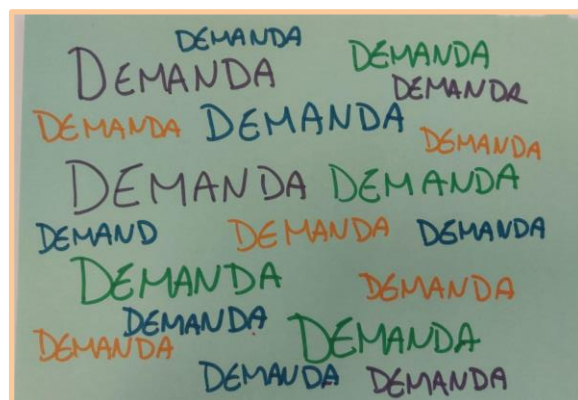 DEMANDA
DEMANDA
DEMANDA
DEMANDR
DEMANDA DEMANDA
DEMANDA
DEMANDA DEMANDA
DEMAND DEMANDA DEMANDA
DEMANDA DEMANDA
DEMANDA
DEMANDA DEMANDA
DEMANDA DEMANDA